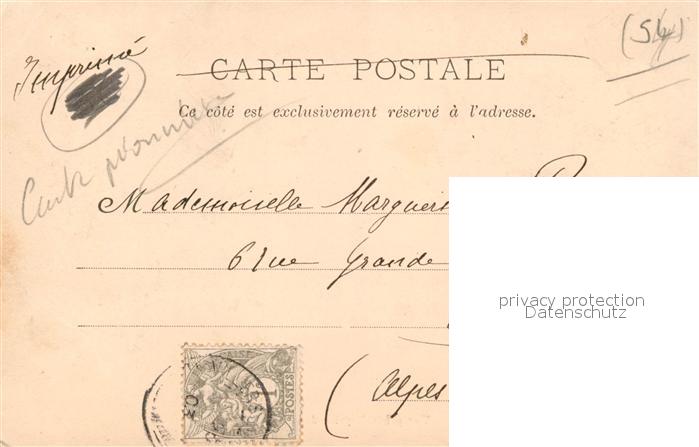 Imprimé
(54)
CARTE POSTALE
Ce côté est exclusivement réservé à l'adresse.
Carte pionnière
Mademoiselle
6 rue Grande
privacy protection
Datenschutz
POSTES
(Alpes